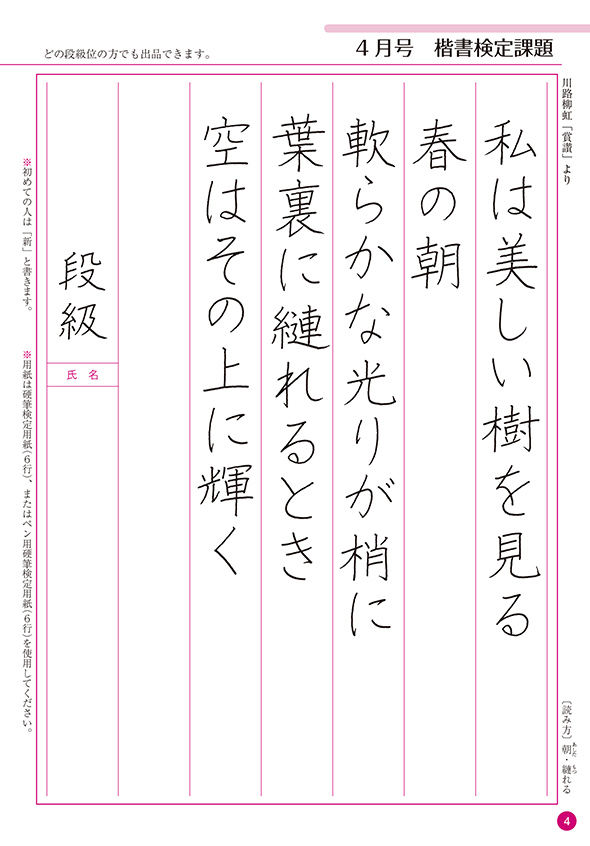 ４月号　楷書検定課題
どの段級位の方でも出品できます。
川路柳虹「賞讃」より
私は美しい樹を見る
春の朝
軟らかな光りが梢に
葉裏に縺れるとき
空はその上に輝く
段級
氏名
〔読み方〕朝・縺れる
あした
もつ
※初めての人は「新」と書きます。
※用紙は硬筆検定用紙（６行）、またはペン用硬筆検定用紙（６行）を使用してください。
4